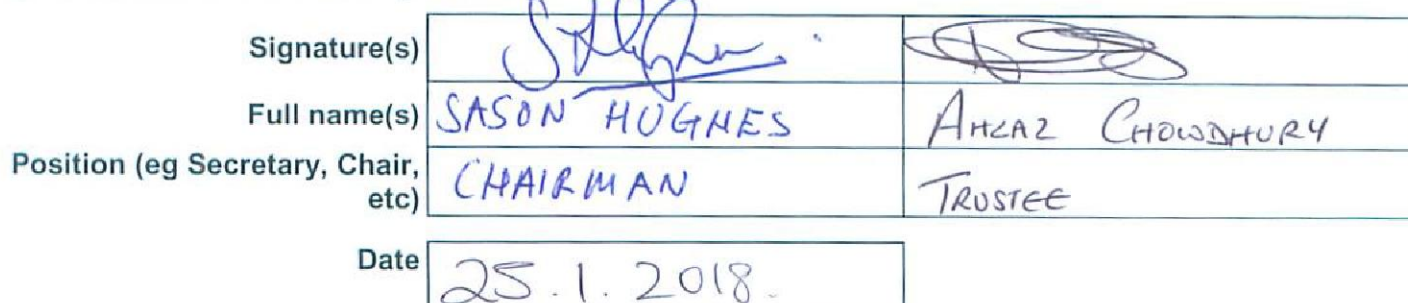 Signature(s)
Full name(s) SASON HUGHES AHZAZ CHOWDHURY
Position (eg Secretary, Chair, etc) CHAIRMAN TRUSTEE
Date 25.1.2018.